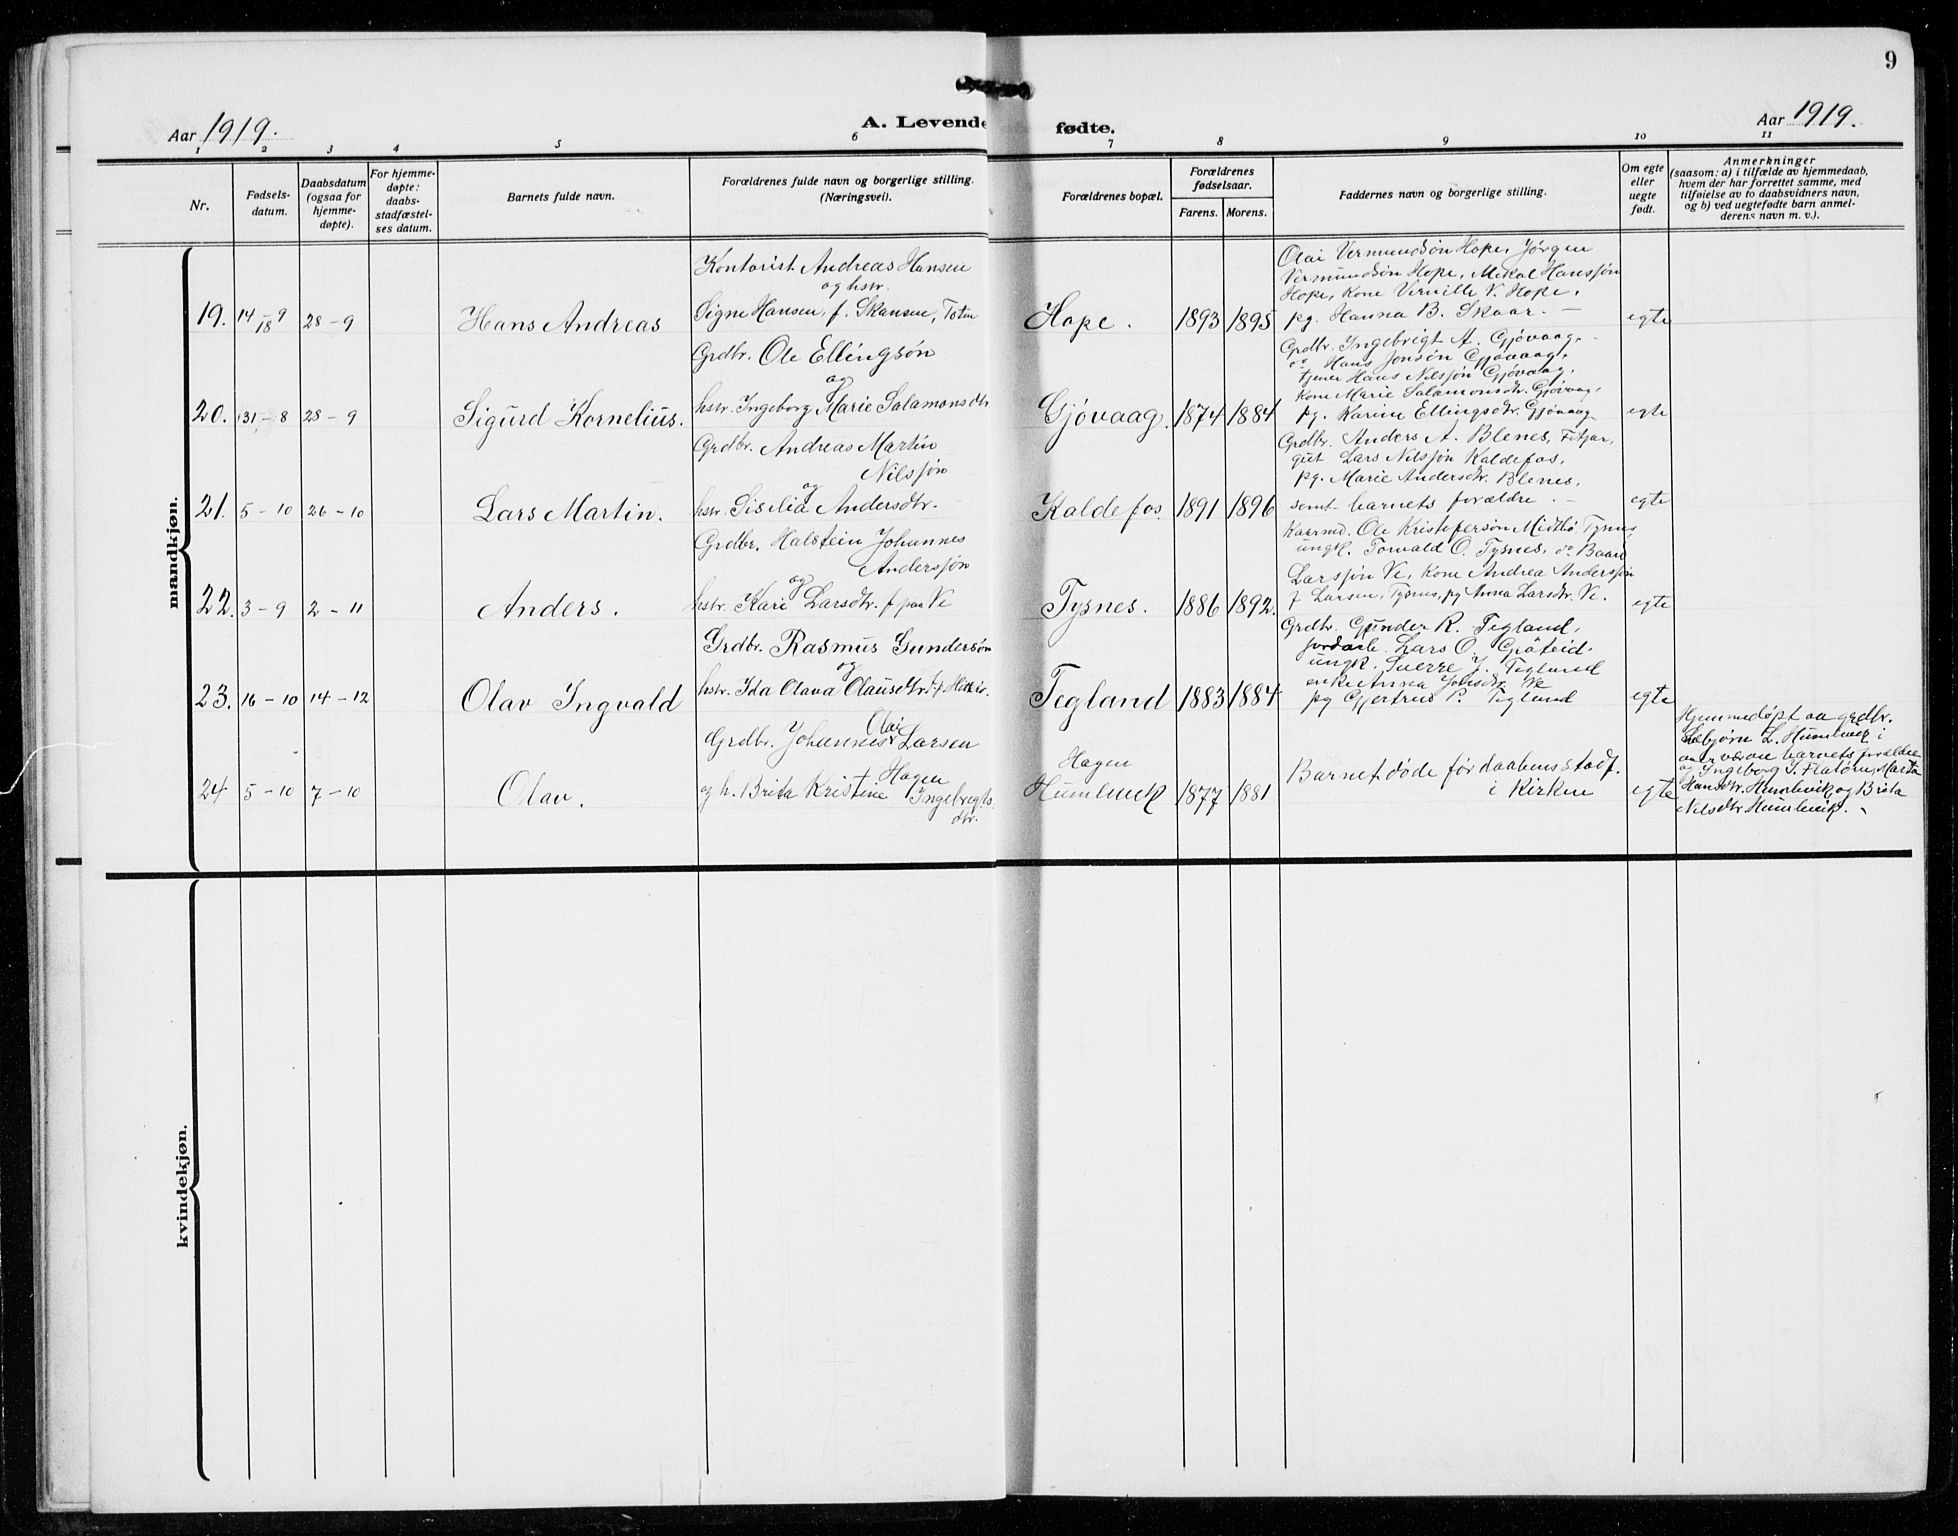 9
Aar 1919.
A. Levende fødte.
Aar 1919.
1 2 3 4 5 6 7 8 9 10 11
Nr.
Fødsels-
datum.
Daabsdatum
(ogsaa for
hjemme-
døpte).
For hjemme-
døpte:
daabs-
stadfæstel-
ses datum.
Barnets fulde navn.
Forældrenes fulde navn og borgerlige stilling.
(Næringsvei).
Forældrenes bopæl.
Forældrenes
fødselsaar.
Farens. Morens.
Faddernes navn og borgerlige stilling.
Om egte
eller
uegte
født.
Anmerkninger
(saasom: a) i tilfælde av hjemmedaab,
hvem der har forrettet samme, med
tilføielse av to daabsvidners navn,
og b) ved uegtefødte barn anmel-
derens navn m. v.).
mandkjøn.
19. 14/18 - 9 28 - 9 Hans Andreas
Kontorist Andreas Hansen
og hstr.
Signe Hansen, f. Skansen, Toten
Hope. 1893 1895
Olai Vermundsøn Hope, Jørgen
Vermundsøn Hope, Mikal Hanssøn
Hope, Kone Vernille V. Hope,
pg. Hanna B. Skaar. -
egte
20. 31 - 8 28 - 9 Sigurd Kornelius.
Grdbr. Ole Ellingsøn
og
hstr. Ingeborg Marie Salamonsdtr
Gjøvaag. 1874 1884
Grdbr. Ingebrigt A. Gjøvaag,
do Hans Jonsøn Gjøvaag,
tjener Hans Nilsjøn Gjøvaag,
Kone Marie Salamonsdtr. Gjøvaag,
pg. Karine Ellingsdtr. Gjøvaag
egte
21. 5 - 10 26 - 10 Lars Martin.
Grdbr. Andreas Martin
Nilsjøn
og
hstr. Sisilia Andersdtr.
Kaldefos. 1891 1896
Grdbr. Anders A. Blenes, Fitjar,
gut Lars Nilsjøn Kaldefos,
pg. Marie Andersdtr. Blenes,
samt barnets forældre. -
egte
22. 3 - 9 2 - 11 Anders.
Grdbr. Halstein Johannes
Andersjøn
og
hstr. Kari Larsdtr. f. paa Ve
Tysnes. 1886 1892.
Kaarmd. Ole Kristofersøn Midtbø Tysnes
ungk. Torvald O. Tysnes, do Baard
Larsjøn Ve, Kone Andrea Andersjøn
f. Larsen, Tysnes, pg Anna Larsdtr. Ve.
egte
23. 16 - 10 14 - 12 Olav Ingvald
Grdbr. Rasmus Gundersøn
og
hstr. Ida Olava Olausdtr.
Tegland 1883 1884
Grdbr. Gunder R. Tegland,
Lars O.
ungk. Sverre J. Tegland
enke Anna Ve
pg Gjertrud P. Tegland
egte
24 5 - 10 7 - 10 Olav.
Grdbr. Johannes Olai Larsen
Hagen
og h. Brita Kristine Ingebrigts-
dtr.
Hagen
Humlevik 1877 1881
Barnet døde før daabens stadf.
i Kirken
egte
Hjemmedøpt av grdbr.
L. Humlevik i
overvære barnets forældre
og Ingeborg J. Flatøen, Marta
Hansdtr. Humlevik og Brita
Nilsdtr. Humlevik.
kvindekjøn.